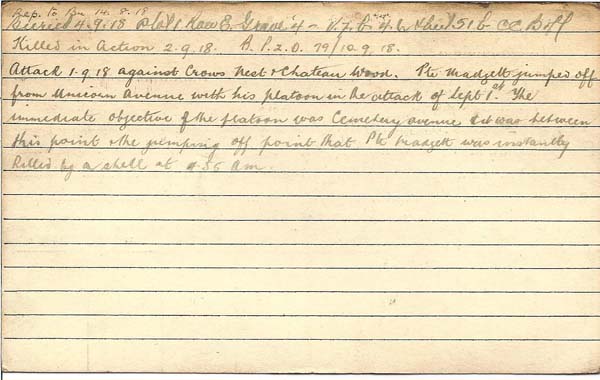 Rep. to Bn. 14.8.18
Buried 4.9.18 Plot 1 Row E. Grave 4 - V.7.b.4.6 Sheet 51b
Killed in Action 2.9.18. A.P.2.O. 79/10.9.18.
Attack 1.9.18 against Crows Nest & Chateau Wood. Pte Madgett jumped off
from Unicorn Avenue with his platoon in the attack of Sept 1st. The
immediate objective of the platoon was Cemetery avenue & it was between
this point & the jumping off point that Pte Madgett was instantly
killed by a shell at 4.55 am.